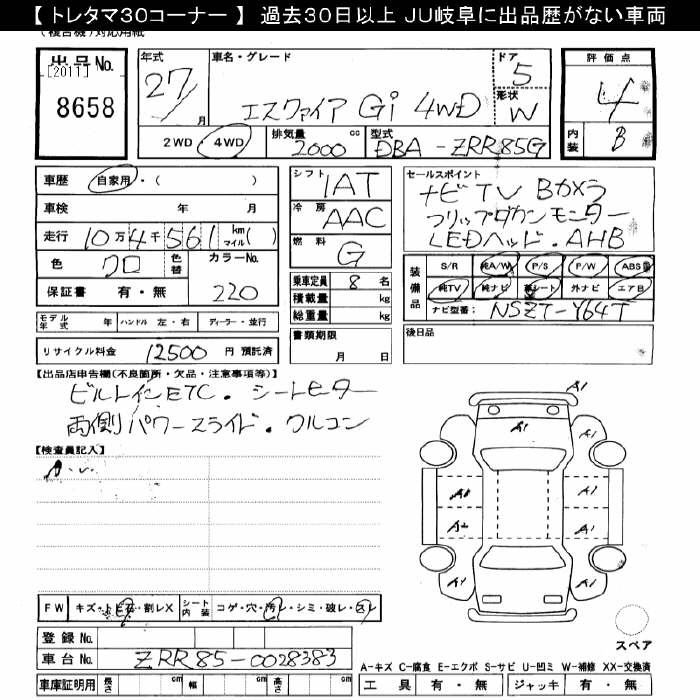 【 トレタマ30コーナー 】 過去30日以上 JU岐阜に出品歴がない車両
(複合機)対応用紙
出品No. [2011] 8658
年式 27 月
車名・グレード エスクァイア Gi 4WD
ドア 5
形状 W
評価点 4
内装 B
2WD・4WD
排気量 2000 cc
型式 DBA-ZRR85G
車歴 自家用・( )
車検 年 月
走行 10万4千561 km マイル( )
色 クロ 色替
カラーNo. 220
保証書 有・無
シフト IAT
冷房 AAC
燃料 G
乗車定員 8 名
積載量 kg
総重量 kg
書類期限 月 日
セールスポイント
ナビTV Bカメラ
フリップダウンモニター
LEDヘッド.AHB
装備品
S/R 純A/W P/S P/W ABS
純TV 純ナビ 革シート 外ナビ エアB
ナビ型番: NSZT-Y64T
モデル年式 年 ハンドル 左・右 ディーラー・並行
後日品
リサイクル料金 12500 円 預託済
【出品店申告欄(不良箇所・欠品・注意事項等)】
ビルトインETC. シートヒーター
両側パワースライド. クルコン
【検査員記入】
A1
A1 A1
A1
A2 A1
A1 A1
FW キズ・トビ石・割レX シート内装 コゲ・穴・汚レ・シミ・破レ・スレ
登録No.
車台No. ZRR85-0028383
車庫証明用 長さ cm 幅 cm 高さ cm
スペア
A-キズ C-腐食 E-エクボ S-サビ U-凹ミ W-補修 XX-交換済
工具 有・無 ジャッキ 有・無